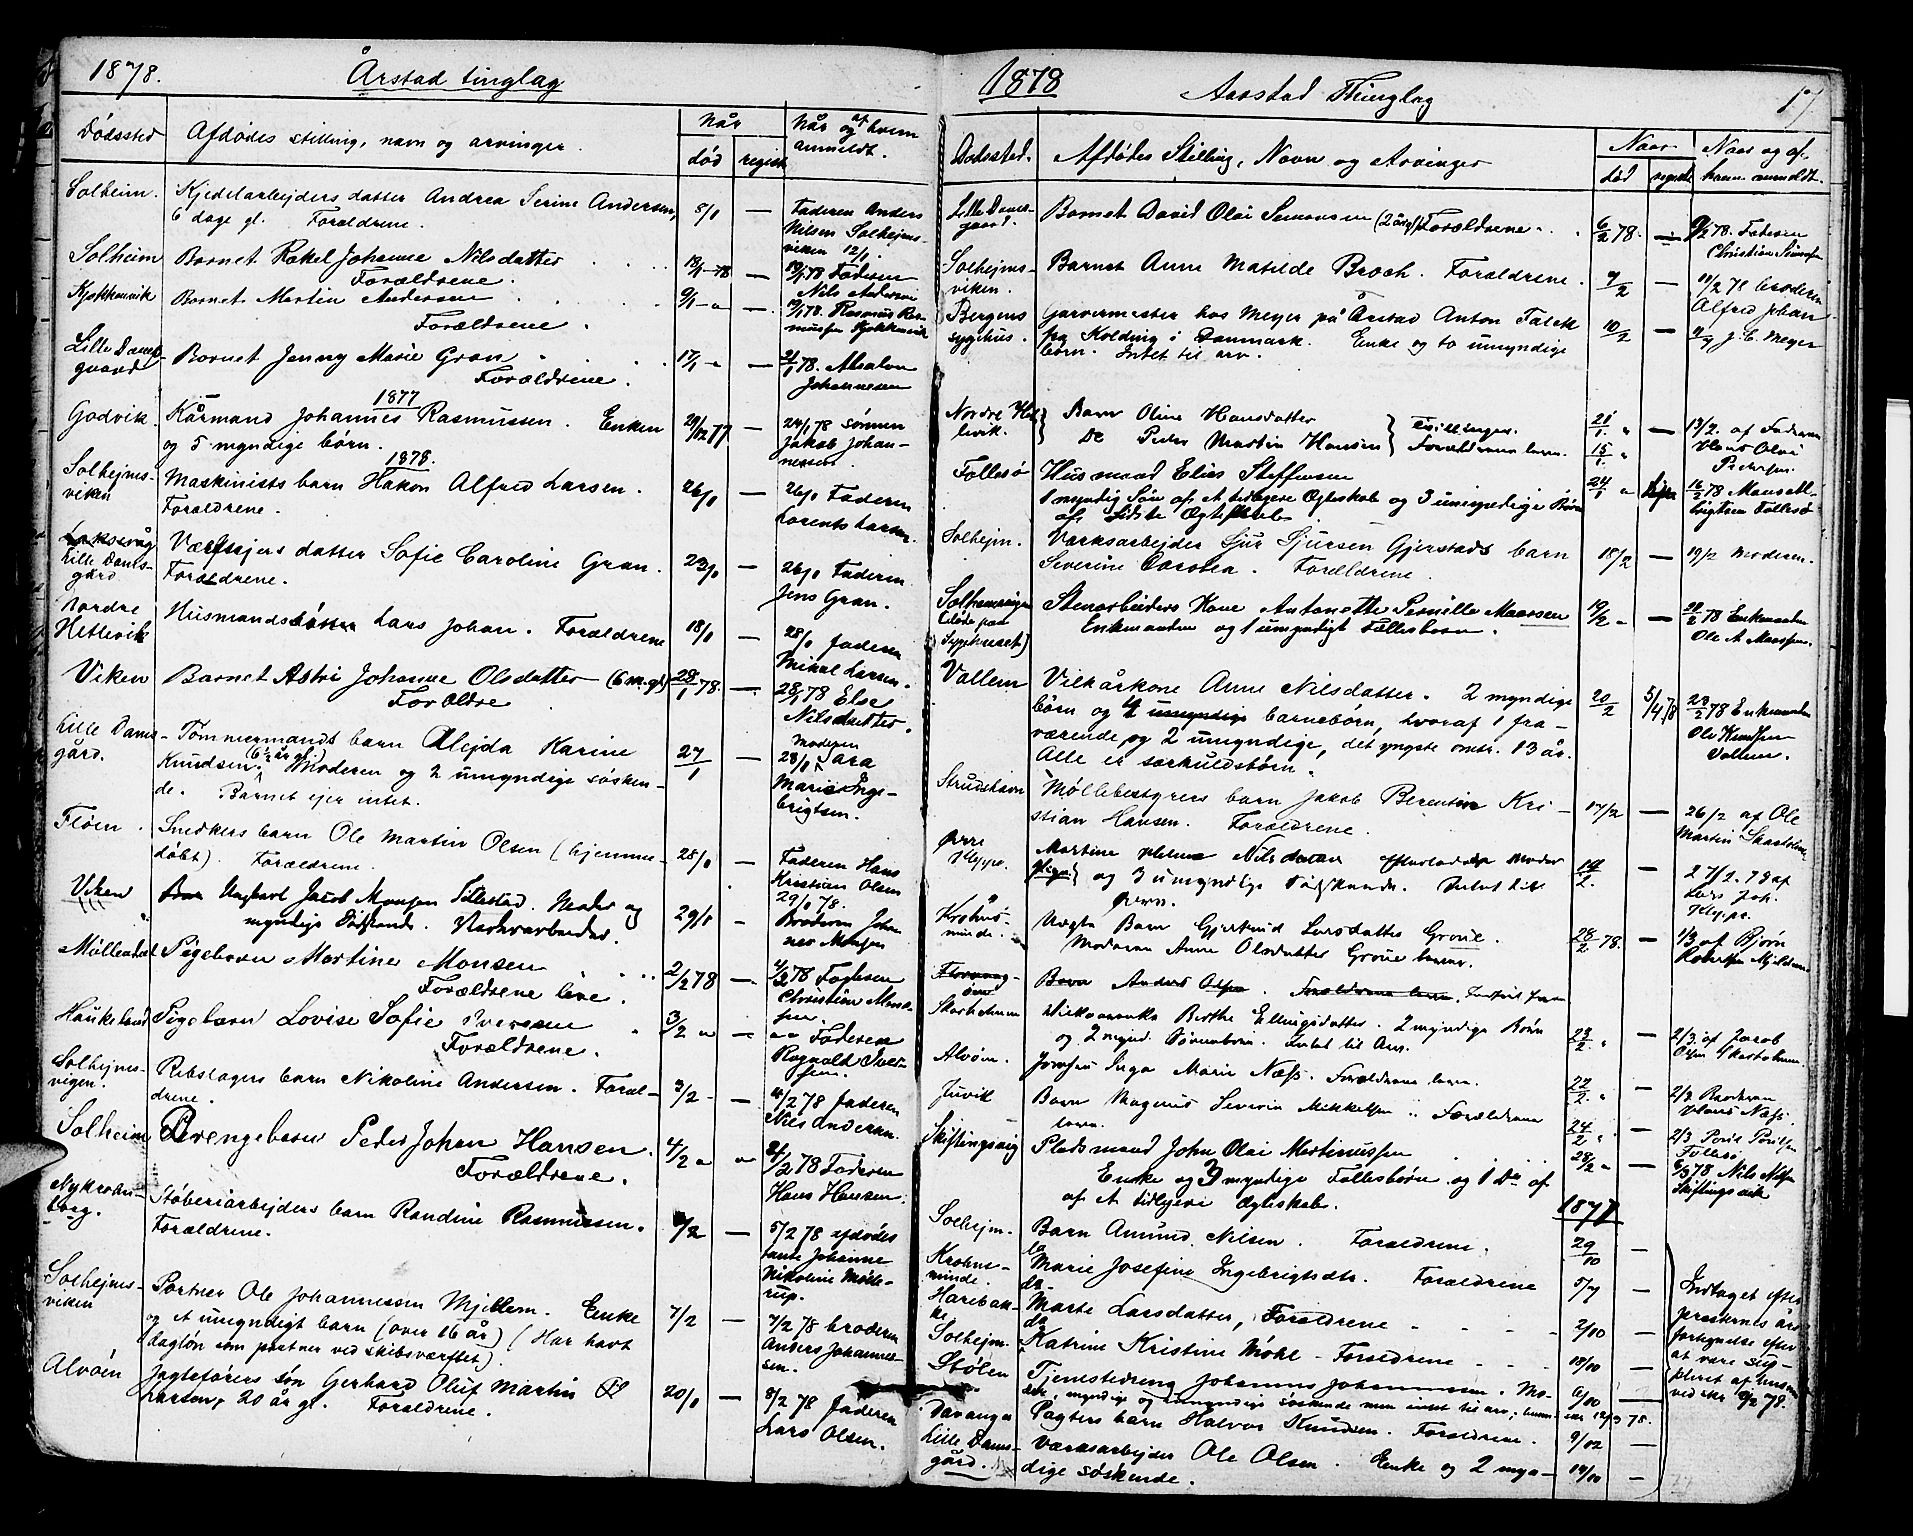 1878. Årstad tinglag
Dødssted Afdødes stilling, navn og arvinger. Når Når og af hvem anmeldt.
død regist
Solheim. Kjedelarbejders datter Andrea Serine Andersen, 8/1 — Faderen Anders
6 dage gl. Forældrene. Nilsen Solhejms-
viken 12/1.
Solheim Barnet Rakel Johanne Nilsdatter 13/1-78 — Faderen
Forældrene. Nils Andersen
Kjøkkenvik Barnet Martin Andersen 9/1 — Rasmus Ras-
Forældrene. mussen Kjøkkenvik
Lille Dams- Barnet Jenny Marie Gran 17/1 — 21/1 78. Absalon
gaard Forældrene. Johannesen
1877
Godvik Kårmand Johannes Rasmussen. Enken 29/12 77 — 24/1 78 sønnen
og 5 myndige børn. Jakob Johan-
nessen.
1878.
Solhejms- Maskinists barn Håkon Alfred Larsen. 26/1 — 26/1 Faderen
viken Forældrene. Lorents Larsen.
Laksevåg
Lille Dams- datter Sofie Caroline Gran. 23/1 — 26/1 Faderen
gård Forældrene. Jens Gran.
Nordre Husmands Lars Johan. Forældrene 18/1 — 28/1 Faderen
Hetlevik Mikal Larsen.
Viken Barnet Astri Johanne Olsdatter (6 m. gl) 28/1 78. — 28/1 78 Else
Forældre Nilsdatter.
Lille Dams- Tømmermands barn Alejda Karine 27/1 Moderen
gård. Knudsen. (6½ år gl.) Moderen og 2 umyndige søsken- 28/1 Sara
de. Barnet ejer intet. Marie Inge-
brigtsen.
Fløen. Snedkers barn Ole Martin Olsen (hjemme- 28/1 — Faderen Hans
døbt). Forældrene. Kristian Olsen
29/1 78.
Viken Ungkarl Jacob Monsen Tillestad. Moder og 29/1 — Broderen Johan-
myndige Sødskende. Værksarbeider. nes Monsen
Møllendal Pigebarn Martine Monsen 2/2 78 — 4/2 78 Faderen
Forældrene leve. Christian Mon-
sen.
Haukeland Pigebarn Lovise Sofie Iversen 3/2 — Faderen
Forældrene. Ragnald Iver-
sen.
Solhejms- Rebslagers barn Nikoline Andersen. Foræl- 3/2 — 4/2 78 Faderen
vigen. drene. Nils Andersen.
Solheim Drengebarn Peder Johan Hansen. 4/2 4/2 78 Faderen
Forældrene. Hans Hansen.
Nykrohn- Støberiarbejders barn Randine Rasmussen. /2 — 5/2 78 afdødes
borg. Forældrene. tante Johanne
Nikoline Mølle-
rup.
Solhejms- Portner Ole Johannessen Mjellem. Enke 7/2 — 7/2 78 broderen
viken og et umyndigt barn (over 16 år) (Har havt Anders Johannes-
dagløn som portner ved skibsværftet). sen.
Alvøen Jagteførers søn Gerhard Oluf Martin 20/1 — 8/2 78 Faderen
Larsen, 20 år gl. Forældrene. Lars Olsen.
1878 Aarstad Thinglag 17
Dødssted. Afdødes Stilling, Navn og Arvinger Naar Naar og af
død regist hvem anmeldt.
Lille Dams- Barnet David Olai Simonsen (2 år gl) Forældrene. 6/2 78. — 9/2 78. Faderen
gaard Christian Simonsen
Solhejms- Barnet Anne Matilde Broch. Forældrene. 7/2 — 11/2 78 broderen
viken. Alfred Johan
Bergens Garvermester hos Meyer på Årstad Anton Falck 10/2 — J. C. Meyer
sygehus. fra Kolding i Danmark. Enke og to umyndige
børn. Intet til arv.
Nordre Het- Barn Oline Hansdatter Tvillinger. 21/1. — 13/2. af Faderen
levik. Do Peder Martin Hansen Forældrene leve. 15/1. Hans Olai
Pedersen.
Follesø Husmand Elias Steffensen 24/1 16/2 78 Mons
1 myndig Søn af et tidligere Egteskab og 3 umyndige Børn Follesø
af sidste Ægteskab
Solhejm. Værksarbejder Sjur Sjursen Gjerstads barn 18/2 — 19/2 Moderen.
Severine Dorotea. Forældrene.
Solheimsvigen Stenarbeiders Kone Antonette Pernille Maassen 19/2 — 78 Enkemanden
(døde paa Enkemanden og 1 umyndigt Fællesbarn. Ole A. Maassen.
Sygehuset)
Vallem Vilkårkone Anne Nilsdatter. 2 myndige 20/2 5/4 78 23/2 78 Enkemanden
børn og 4 umyndige barnebørn, hvoraf 1 fra- Ole Knudsen
værende, og 2 umyndige, det yngste omtr. 13 år. Vallem.
Alle er særkuldsbørn.
Strudshavn Møllebestyrers barn Jakob Berentin Kri- 17/2 — 26/2 af Ole
stian Hansen. Forældrene. Martin Skarholm
Kleppe. Martine Helene Nilsdatter efterladder Moder 14/2. — 27/2. 78 af
Pige og 3 umyndige Sødskende. Intet til Lars Joh.
Kleppe.
Krohns- Uægte Barn Gjertrud Larsdatter Groue. 28/2 78. — 1/3 af Bjørn
minde. Moderen Anne Olsdatter Groue lever.
Barn Anders Olsen. Forældrene leve.
Skarholmen Vilkaarenke Berthe Ellingsdatter. 2 myndige Børn 23/2. — 2/3 af Jacob
og 2 mynd. Sønnebørn. Intet til Arv. Skarholmen
Alvøen. Jomfru Inga Marie Næss. Forældrene leve. 22/2. — 2/3 Broderen
Hans Næss.
Juvik Barn Magnus Severin Mikkelsen Forældrene 24/2. — 2/3 Povil Povilsen
leve. Follesø
Skiftingsvig Pladsmand John Olai Martinussen 28/2 — 6/3 78 Nils Nilsen
Enke og 3 myndige Fællesbørn og 1 Do af Skiftingsvik
af et tidligere Ægteskab.
1877
Solhejm. Barn Amund Nilsen. Forældrene. 29/10 —
Krohns- do Marie Josefine Ingebrigtsdtr. Forældrene 5/7 — Indtaget efter
minde. præsternes års
Haribak- do Marte Larsdatter, Forældrene 2/10 — fortegnelse efter
ke at være sup-
Solhejm. do Katrine Kristine Møhl. Forældrene 18/10 — pleret af lensm.
Stølen Tjenestedreng Johannes Johannessen. Mo- 6/10 ved skr 9/2 78.
der, myndige og umyndige søskende men intet til arv; skr 12/3 78.
Davanger Pagters barn Halvor Knudsen. Forældrene. 9/12 —
Lille Dams- Værksarbejder Ole Olsen. Enke og 2 myn- 14/10 —
gård. dige søskende.